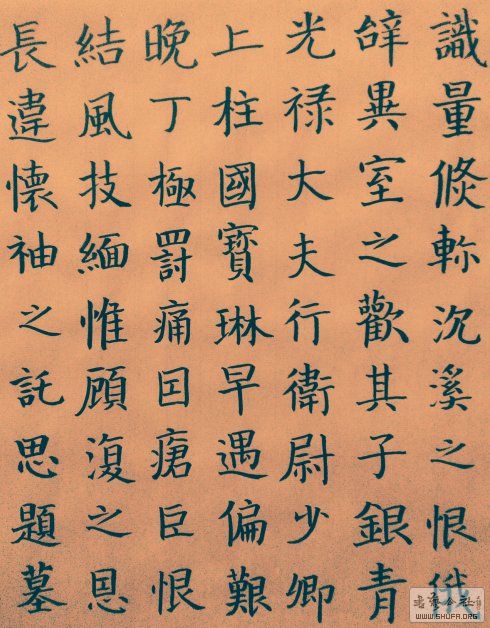 識量倏軫沉溪之恨俄
辞異室之歡其子銀青
光禄大夫行衛尉少卿
上柱國寶琳早遇偏艱
晚丁極罸痛囙瘡臣恨
結風技緬惟顧復之恩
長違懷袖之託思題墓
WWW.SHUFA.ORG